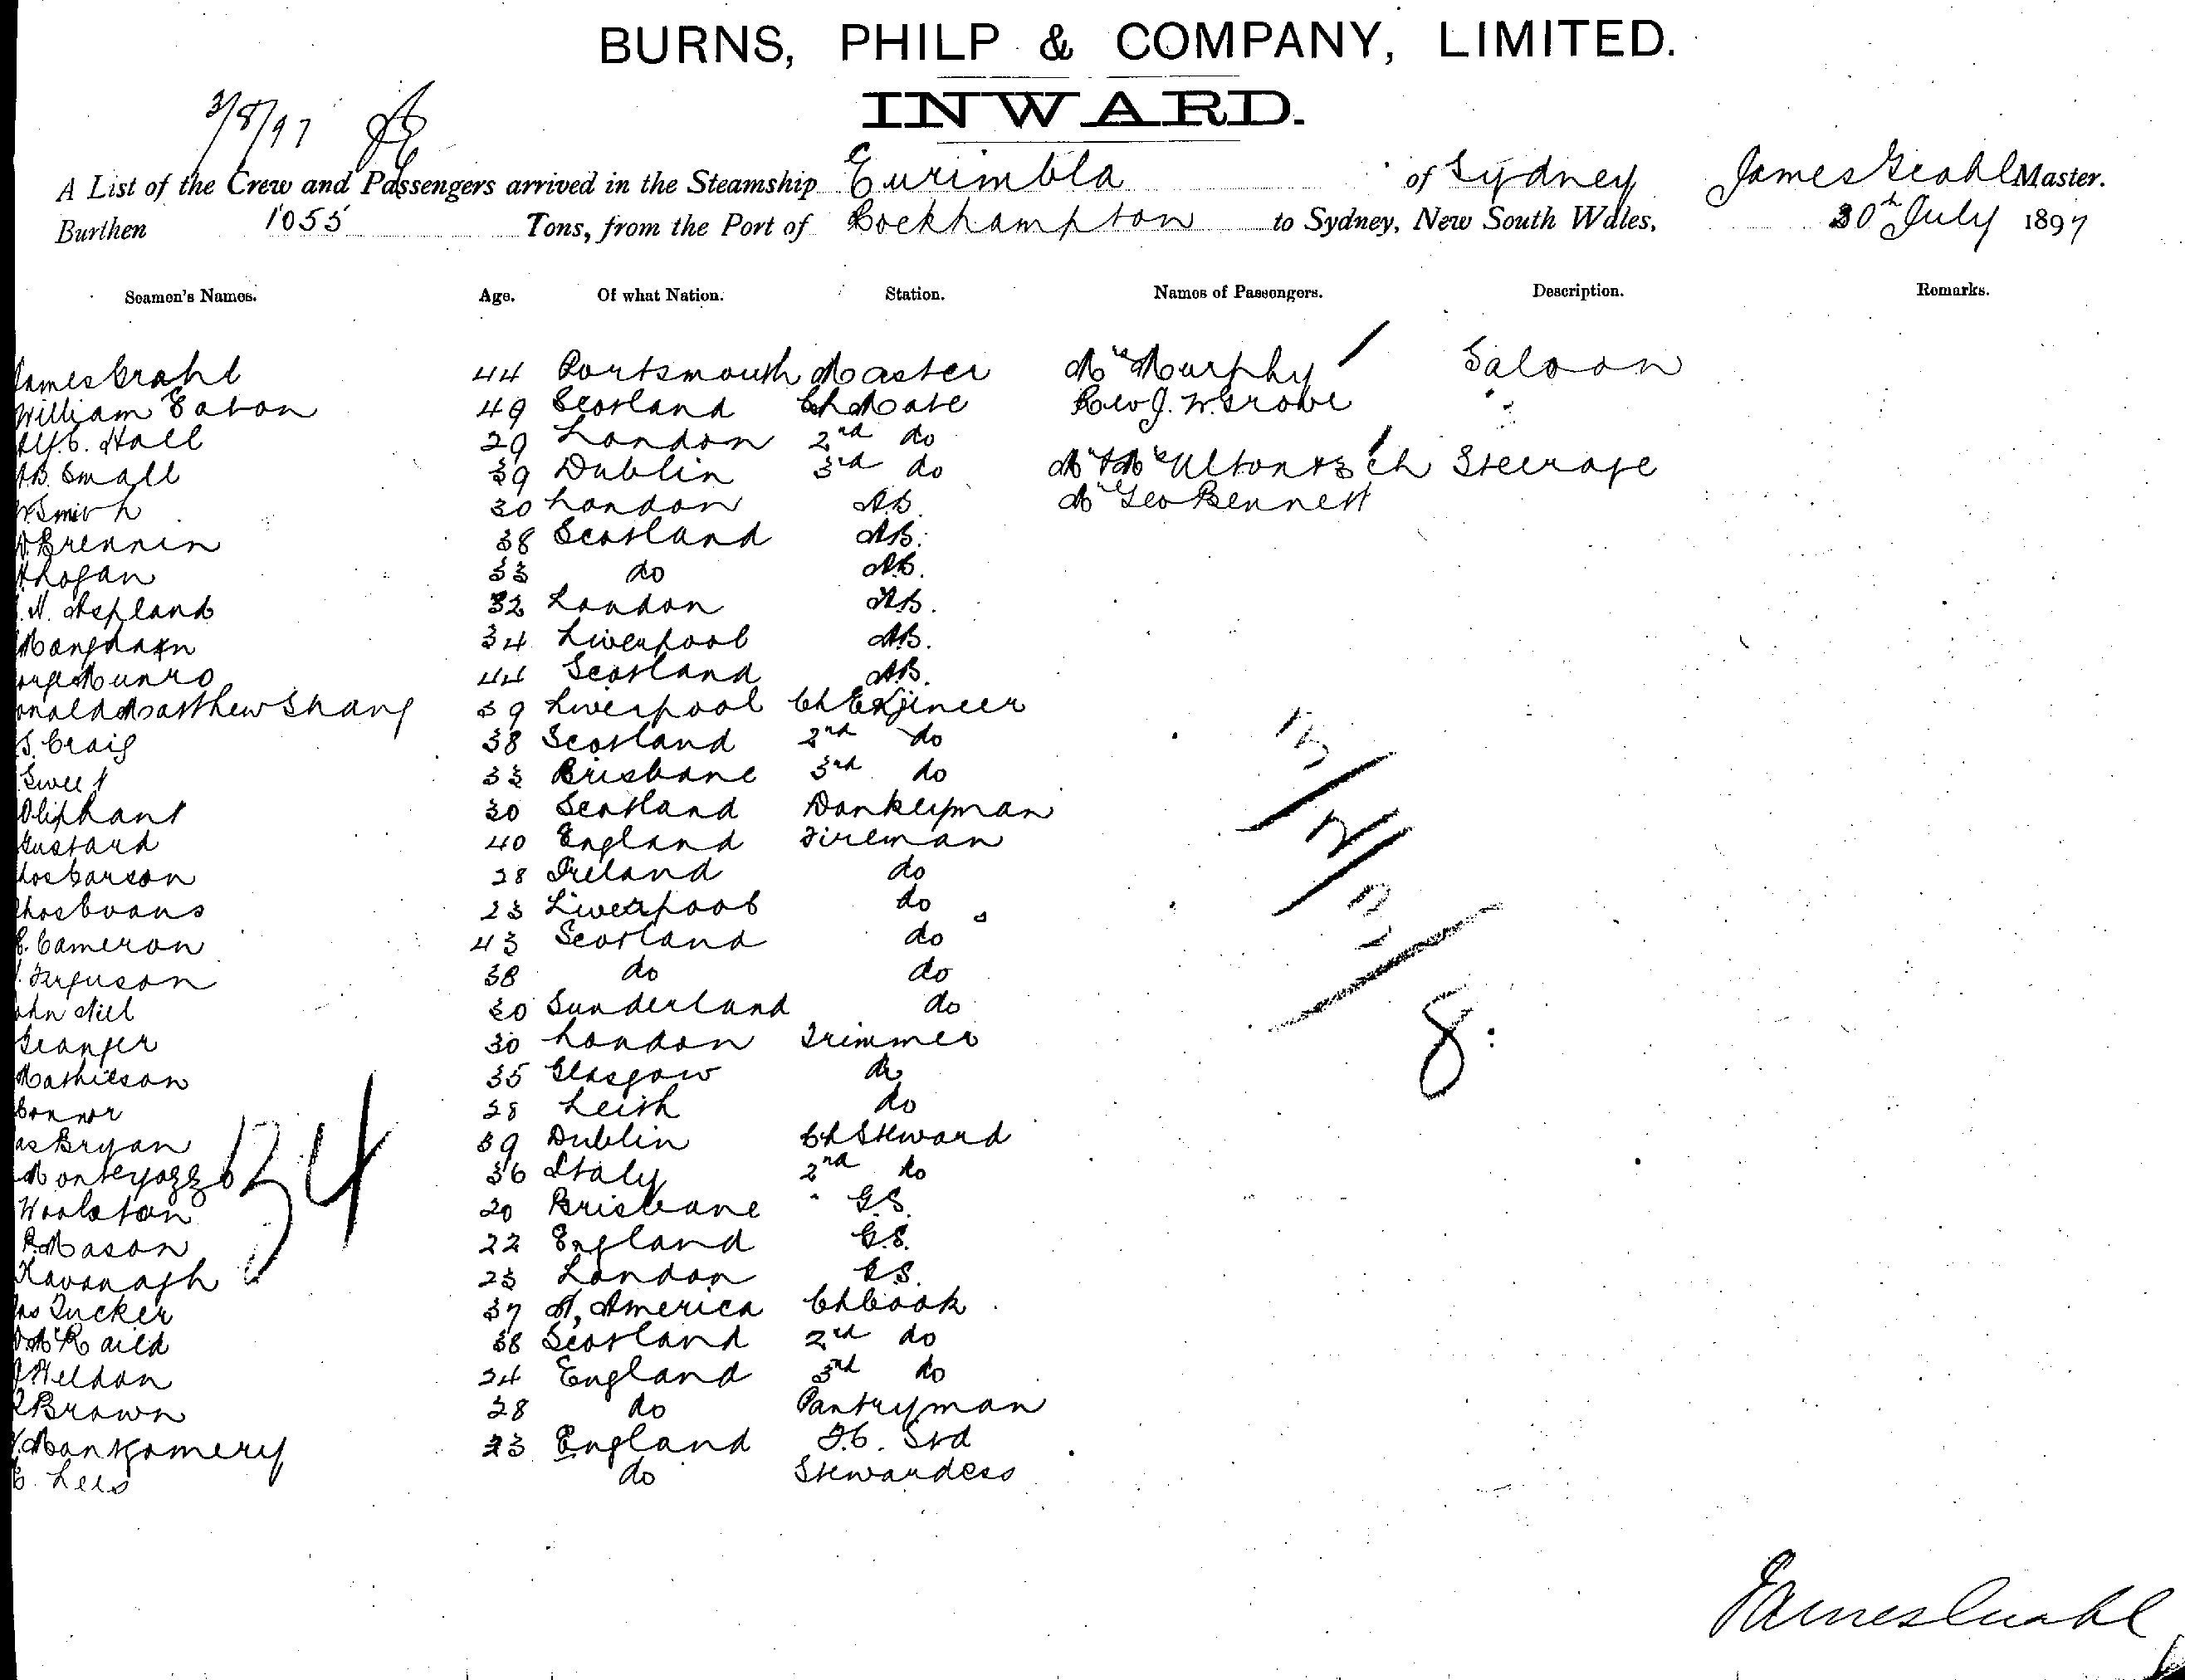 BURNS, PHILP & COMPANY, LIMITED.
INWARD.
3/8/97
A List of the Crew and Passengers arrived in the Steamship Eurimbla of Sydney James Grahl Master.
Burthen 1055 Tons, from the Port of Rockhampton to Sydney, New South Wales, 30th July 1897
Seamen's Names. Age. Of what Nation. Station. Names of Passengers. Description. Remarks.
James Grahl 44 Portsmouth Master Mrs Murphy Saloon
William Eaton 49 Scotland Ch Mate Rev J. W. Grove "
Hall 29 London 2nd do
AB. Small 39 Dublin 3rd do Mr & Mrs Steerage
Smith 30 London AB. Mr Geo Bennett
Brennin 38 Scotland AB.
Logan 33 do AB.
N. Aspland 32 London AB.
34 Liverpool AB.
Munro 44 Scotland AB.
onald Matthew Shang 39 Liverpool Ch Engineer
S. Craig 38 Scotland 2nd do
Sweet 33 Brisbane 3rd do
Oliphant 30 Scotland Donkeyman
Custard 40 England Fireman
hos Carson 28 Ireland do
hos Evans 23 Liverpool do
C. Cameron 43 Scotland do
Ferguson 38 do do
ohn Niel 30 Sunderland do
Granger 30 London Trimmer
Mathieson 35 Glasgow do
Connor 28 Leith do
as Bryan 39 Dublin Ch Steward
Monteyozzo 36 Italy 2nd do
Woolston 20 Brisbane " G.S.
Mason 22 England G.S.
Kavanagh 23 London G.S.
as Tucker 37 N. America Ch Cook
McRaild 38 Scotland 2nd do
Weldon 24 England 3rd do
Brown 28 do Pantryman
Montgomery 23 England F.C. Std
E. Lees do Stewardess
34
3/2/3/8
James Grahl